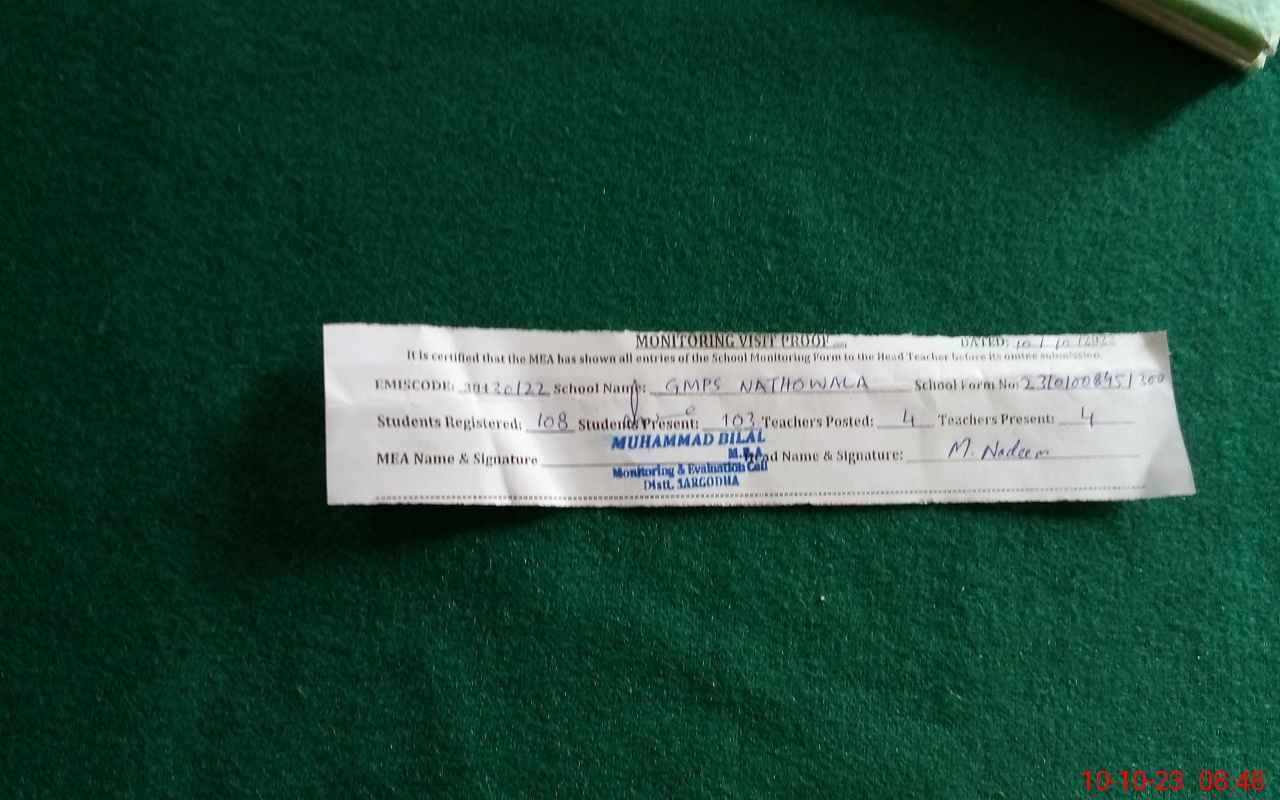 MONITORING VISIT PROOF DATED: 10 / 10 /2023
It is certified that the MEA has shown all entries of the School Monitoring Form to the Head Teacher before its online submission.
EMISCODE: School Name: GMPS NATHOWALA School Form No:
Students Registered: 108 Students Present: 103 Teachers Posted: 4 Teachers Present: 4
MUHAMMAD BILAL
M.E.A
MEA Name & Signature Head Name & Signature: M. Nadeem
Monitoring & Evaluation Cell
Distt. SARGODHA
10-10-23 08:48